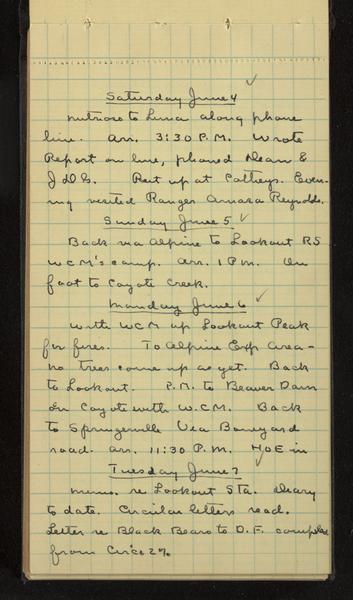 Saturday June 4
Nutrioso to Luna along phone
line. Arr. 3:30 P.M. Wrote
Report on line, phoned Dean &
J D G. Put up at Cotheys. Even-
ing visited Ranger Amasa Reynolds.
Sunday June 5
Back via Alpine to Lookout RS
WCM's camp. Arr. 1 P.M. On
foot to Coyote Creek.
Monday June 6
With WCM up Lookout Peak
for fires. To Alpine Exp Area –
no trees come up as yet. Back
to Lookout. P.M. to Beaver Dam
on Coyote with W.C.M. Back
to Springerville Via Boneyard
road. arr. 11:30 P.M. H O E in
Tuesday June 7
memo. re Lookout Sta. Diary
to date. Circular letters read.
Letter re Black Bears to D.F.
from Circ 2